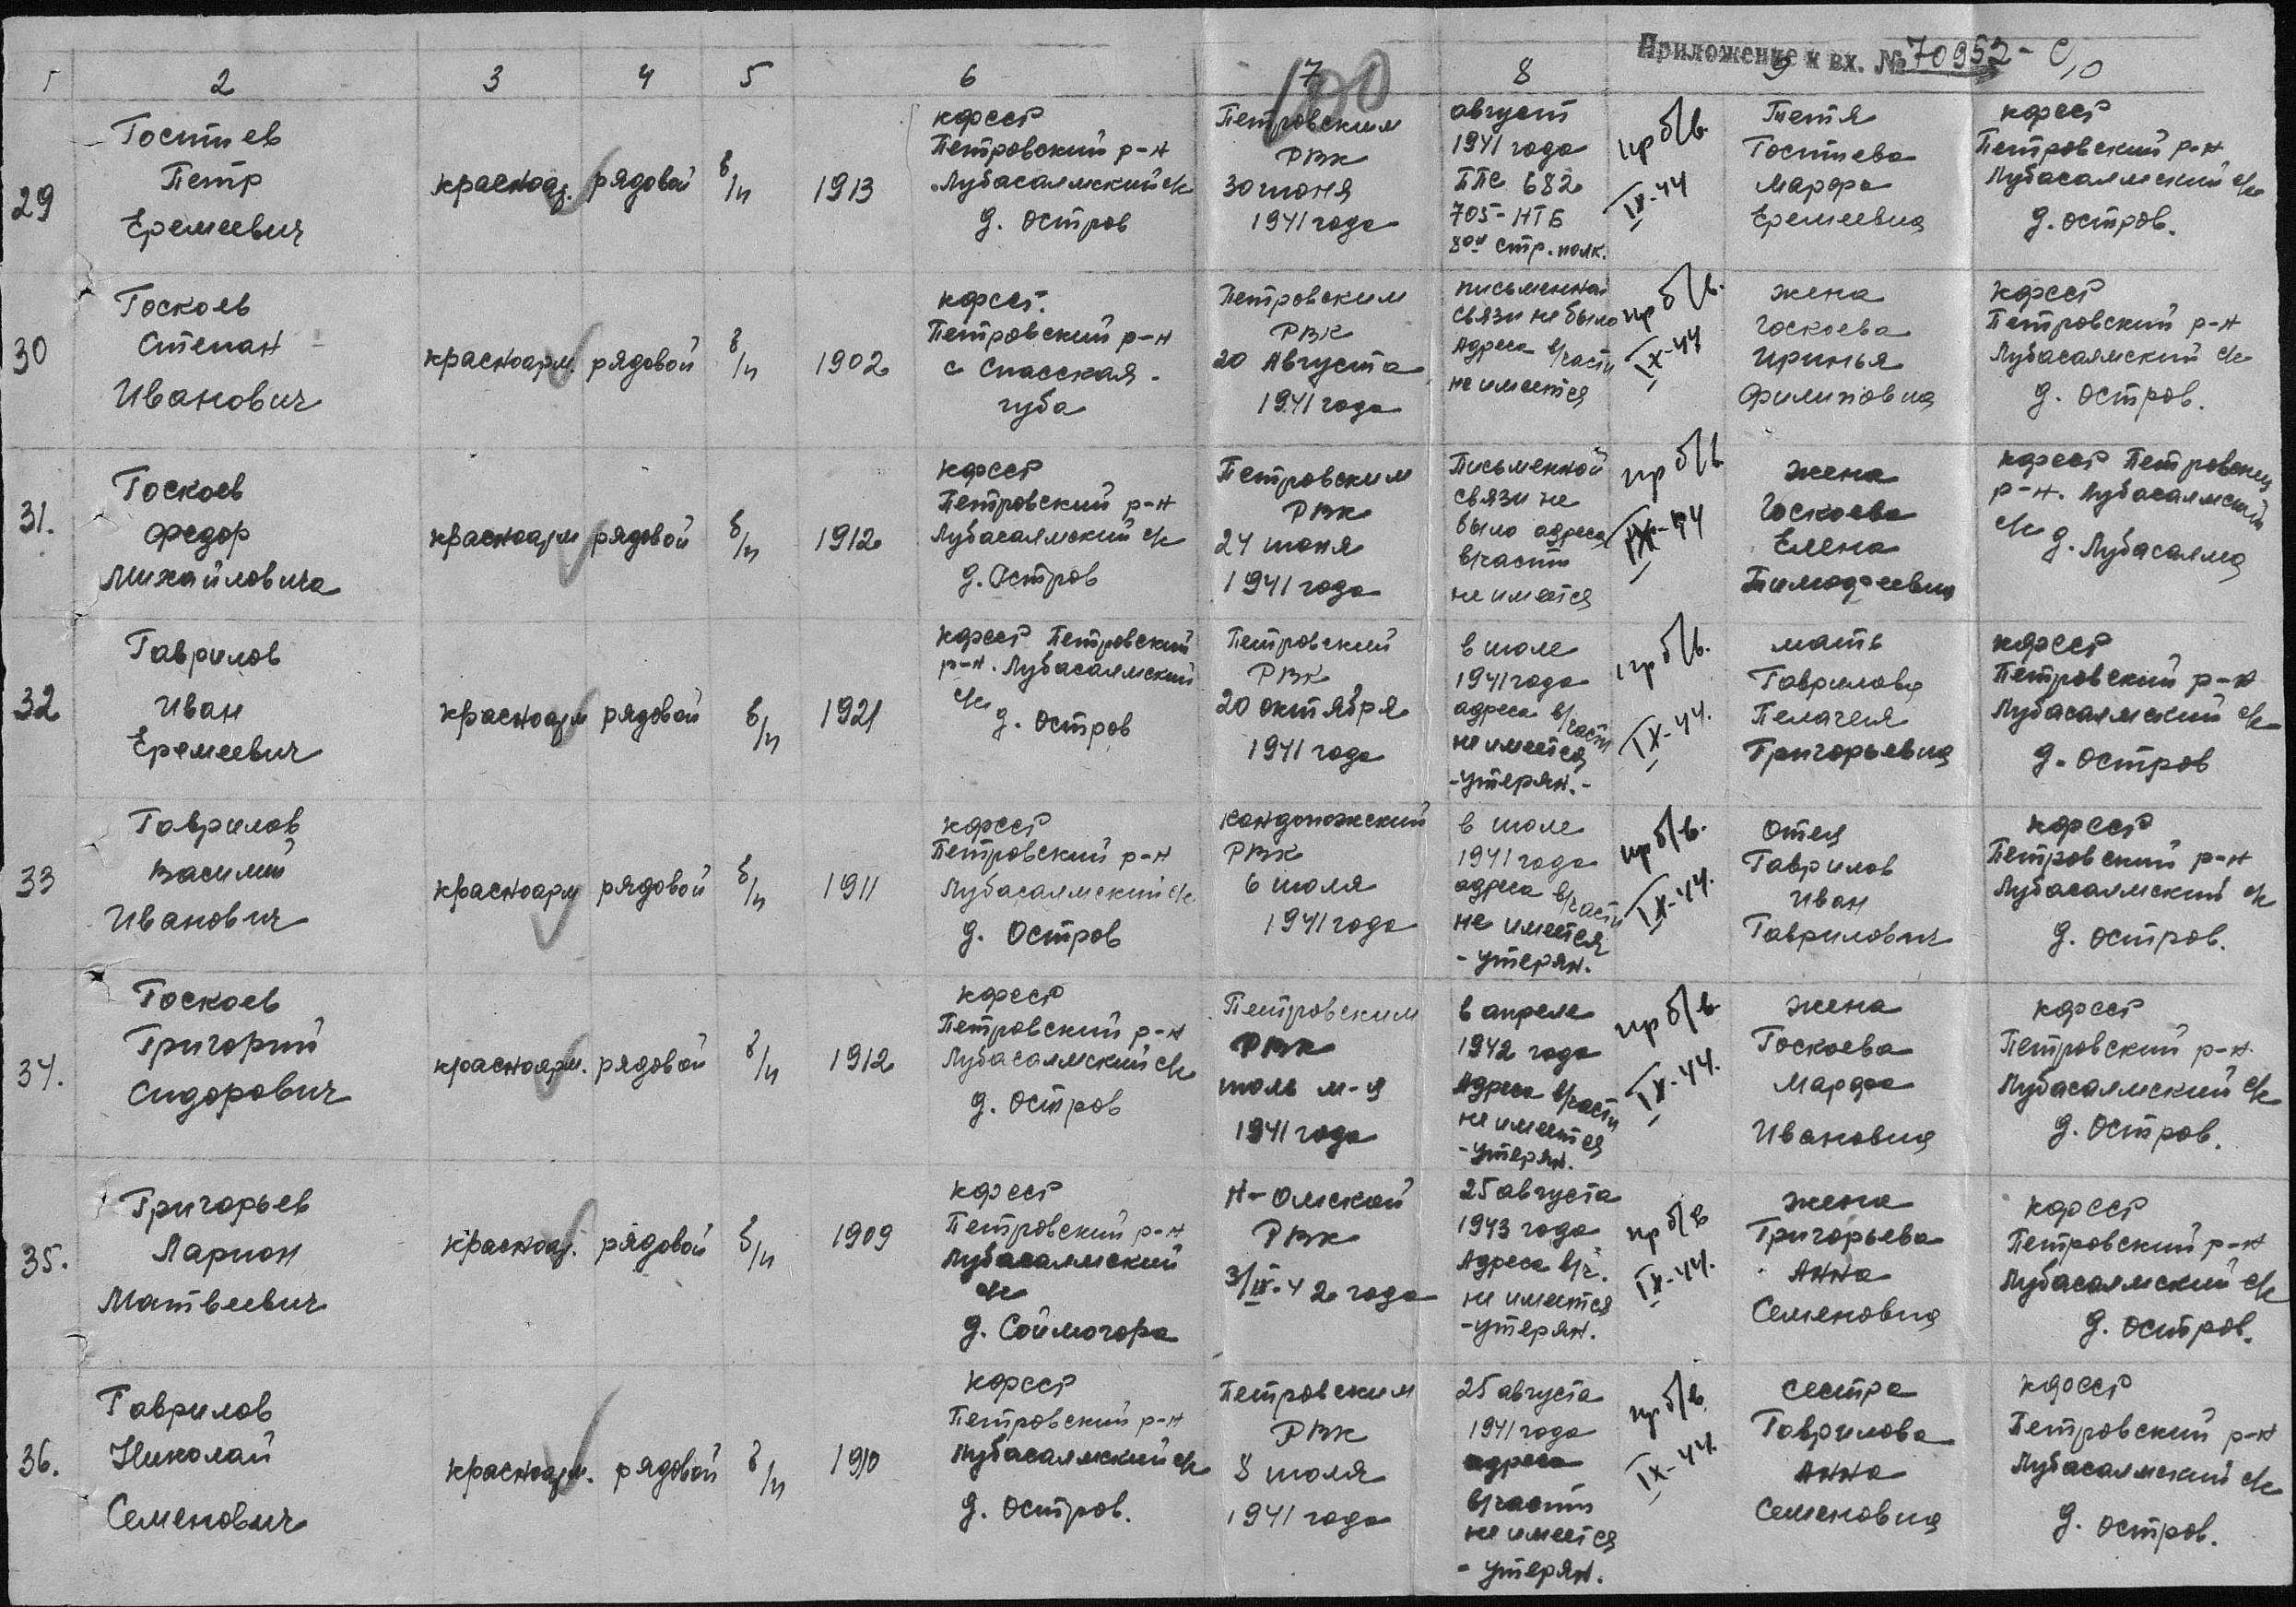 Приложение к вх. № 70952-с
1 2 3 4 5 6 7 8 9 10
100
29
Гостиев
Петр
Еремеевич
красноар.
рядовой
б/п
1913
кфсср
Петровский р-н
Лубасалмский с/с
д. Остров
Петровским
РВК
30 июня
1941 года
август
1941 года
ППС 682
705-НТБ
80й стр. полк.
пр б/в.
IX-44
Тетя
Гостиева
Марфа
Еремеевна
кфсср
Петровский р-н
Лубасалмский с/с
д. остров.
30
Госкоев
Степан
Иванович
красноарм.
рядовой
б/п
1902
кфсср.
Петровский р-н
с Спасская
губа
Петровским
РВК
20 Августа
1941 года
письменной
связи не было
Адреса в/части
не имеется
пр б/в.
IX-44
жена
Госкоева
Иринья
Филиповна
кфсср
Петровский р-н
Лубасалмский с/с
д. Остров.
31.
Госкоев
Федор
Михайловича
красноарм
рядовой
б/п
1912
кфсср
Петровский р-н
Лубасалмский с/с
д. Остров
Петровским
РВК
24 июня
1941 года
Письменной
связи не
было адреса
в/части
не имеется
пр б/в
IX-44
жена
Госкоева
Елена
Тимофеевна
кфсср Петровский
р-н. Лубасалмский
с/с д. Лубасалма
32
Гаврилов
Иван
Еремеевич
красноарм
рядовой
б/п
1921
кфсср Петровский
р-н. Лубасалмский
с/с д. Остров
Петровский
РВК
20 октября
1941 года
в июле
1941 года
адреса в/части
не имеется
-утерян.-
пр б/в.
IX-44.
мать
Гаврилова
Пелагея
Григорьевна
кфсср
Петровский р-н
Лубасалмский с/с
д. Остров
33
Гаврилов
Василий
Иванович
красноарм
рядовой
б/п
1911
кфсср
Петровский р-н
Лубасалмский с/с
д. Остров
Кондопожский
РВК
6 июля
1941 года
в июле
1941 года
адреса в/части
не имеется
- утерян.
пр б/в.
IX-44.
Отец
Гаврилов
Иван
Гаврилович
кфсср
Петровский р-н
Лубасалмский с/с
д. Остров.
34.
Госкоев
Григорий
Сидорович
красноарм.
рядовой
б/п
1912
кфсср
Петровский р-н
Лубасалмский с/с
д. Остров
Петровским
РВК
июль м-я
1941 года
в апреле
1942 года
Адреса в/части
не имеется
-утерян.
пр б/в
IX-44.
жена
Госкоева
Марфа
Ивановна
кфсср
Петровский р-н
Лубасалмский с/с
д. Остров.
35.
Григорьев
Ларион
Матвеевич
красноар.
рядовой
б/п
1909
кфсср
Петровский р-н
Лубасалмский
с/с
д. Соймогора
Н-Омской
РВК
3/IX-42 года
25 августа
1943 года
Адреса в/ч.
не имеется
-утерян.
пр б/в
IX-44.
жена
Григорьева
Анна
Семеновна
кфсср
Петровский р-н
Лубасалмский с/с
д. Остров.
36.
Гаврилов
Николай
Семенович
красноарм.
рядовой
б/п
1910
кфсср
Петровский р-н
Лубасалмский с/с
д. Остров.
Петровским
РВК
8 июля
1941 года
25 августа
1941 года
адреса
в/части
не имеется
- утерян.
пр б/в.
IX-44.
сестра
Гаврилова
Анна
Семеновна
кфсср
Петровский р-н
Лубасалмский с/с
д. Остров.